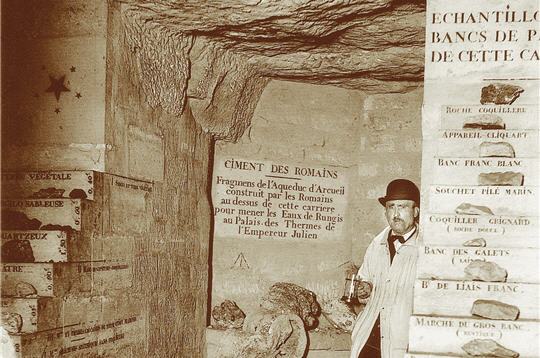 TERRE VÉGÉTALE
SABLEUSE
QUARTZEUX
CIMENT DES ROMAINS
Fragmens de l'Aqueduc d'Arcueil
construit par les Romains
au dessus de cette carriere
pour mener les Eaux de Rungis
au Palais des Thermes de
l'Empereur Julien
ECHANTILLO
BANCS DE P
DE CETTE CA
ROCHE COQUILLERE
APPAREIL CLIQUART
BANC FRANC BLANC
SOUCHET PILÉ MARIN
COQUILLER GRIGNARD
(ROCHE DOUCE)
BANC DES GALETS
BC DE LIAIS FRANC
MARCHE DU GROS BANC
(RUSTIQUE)